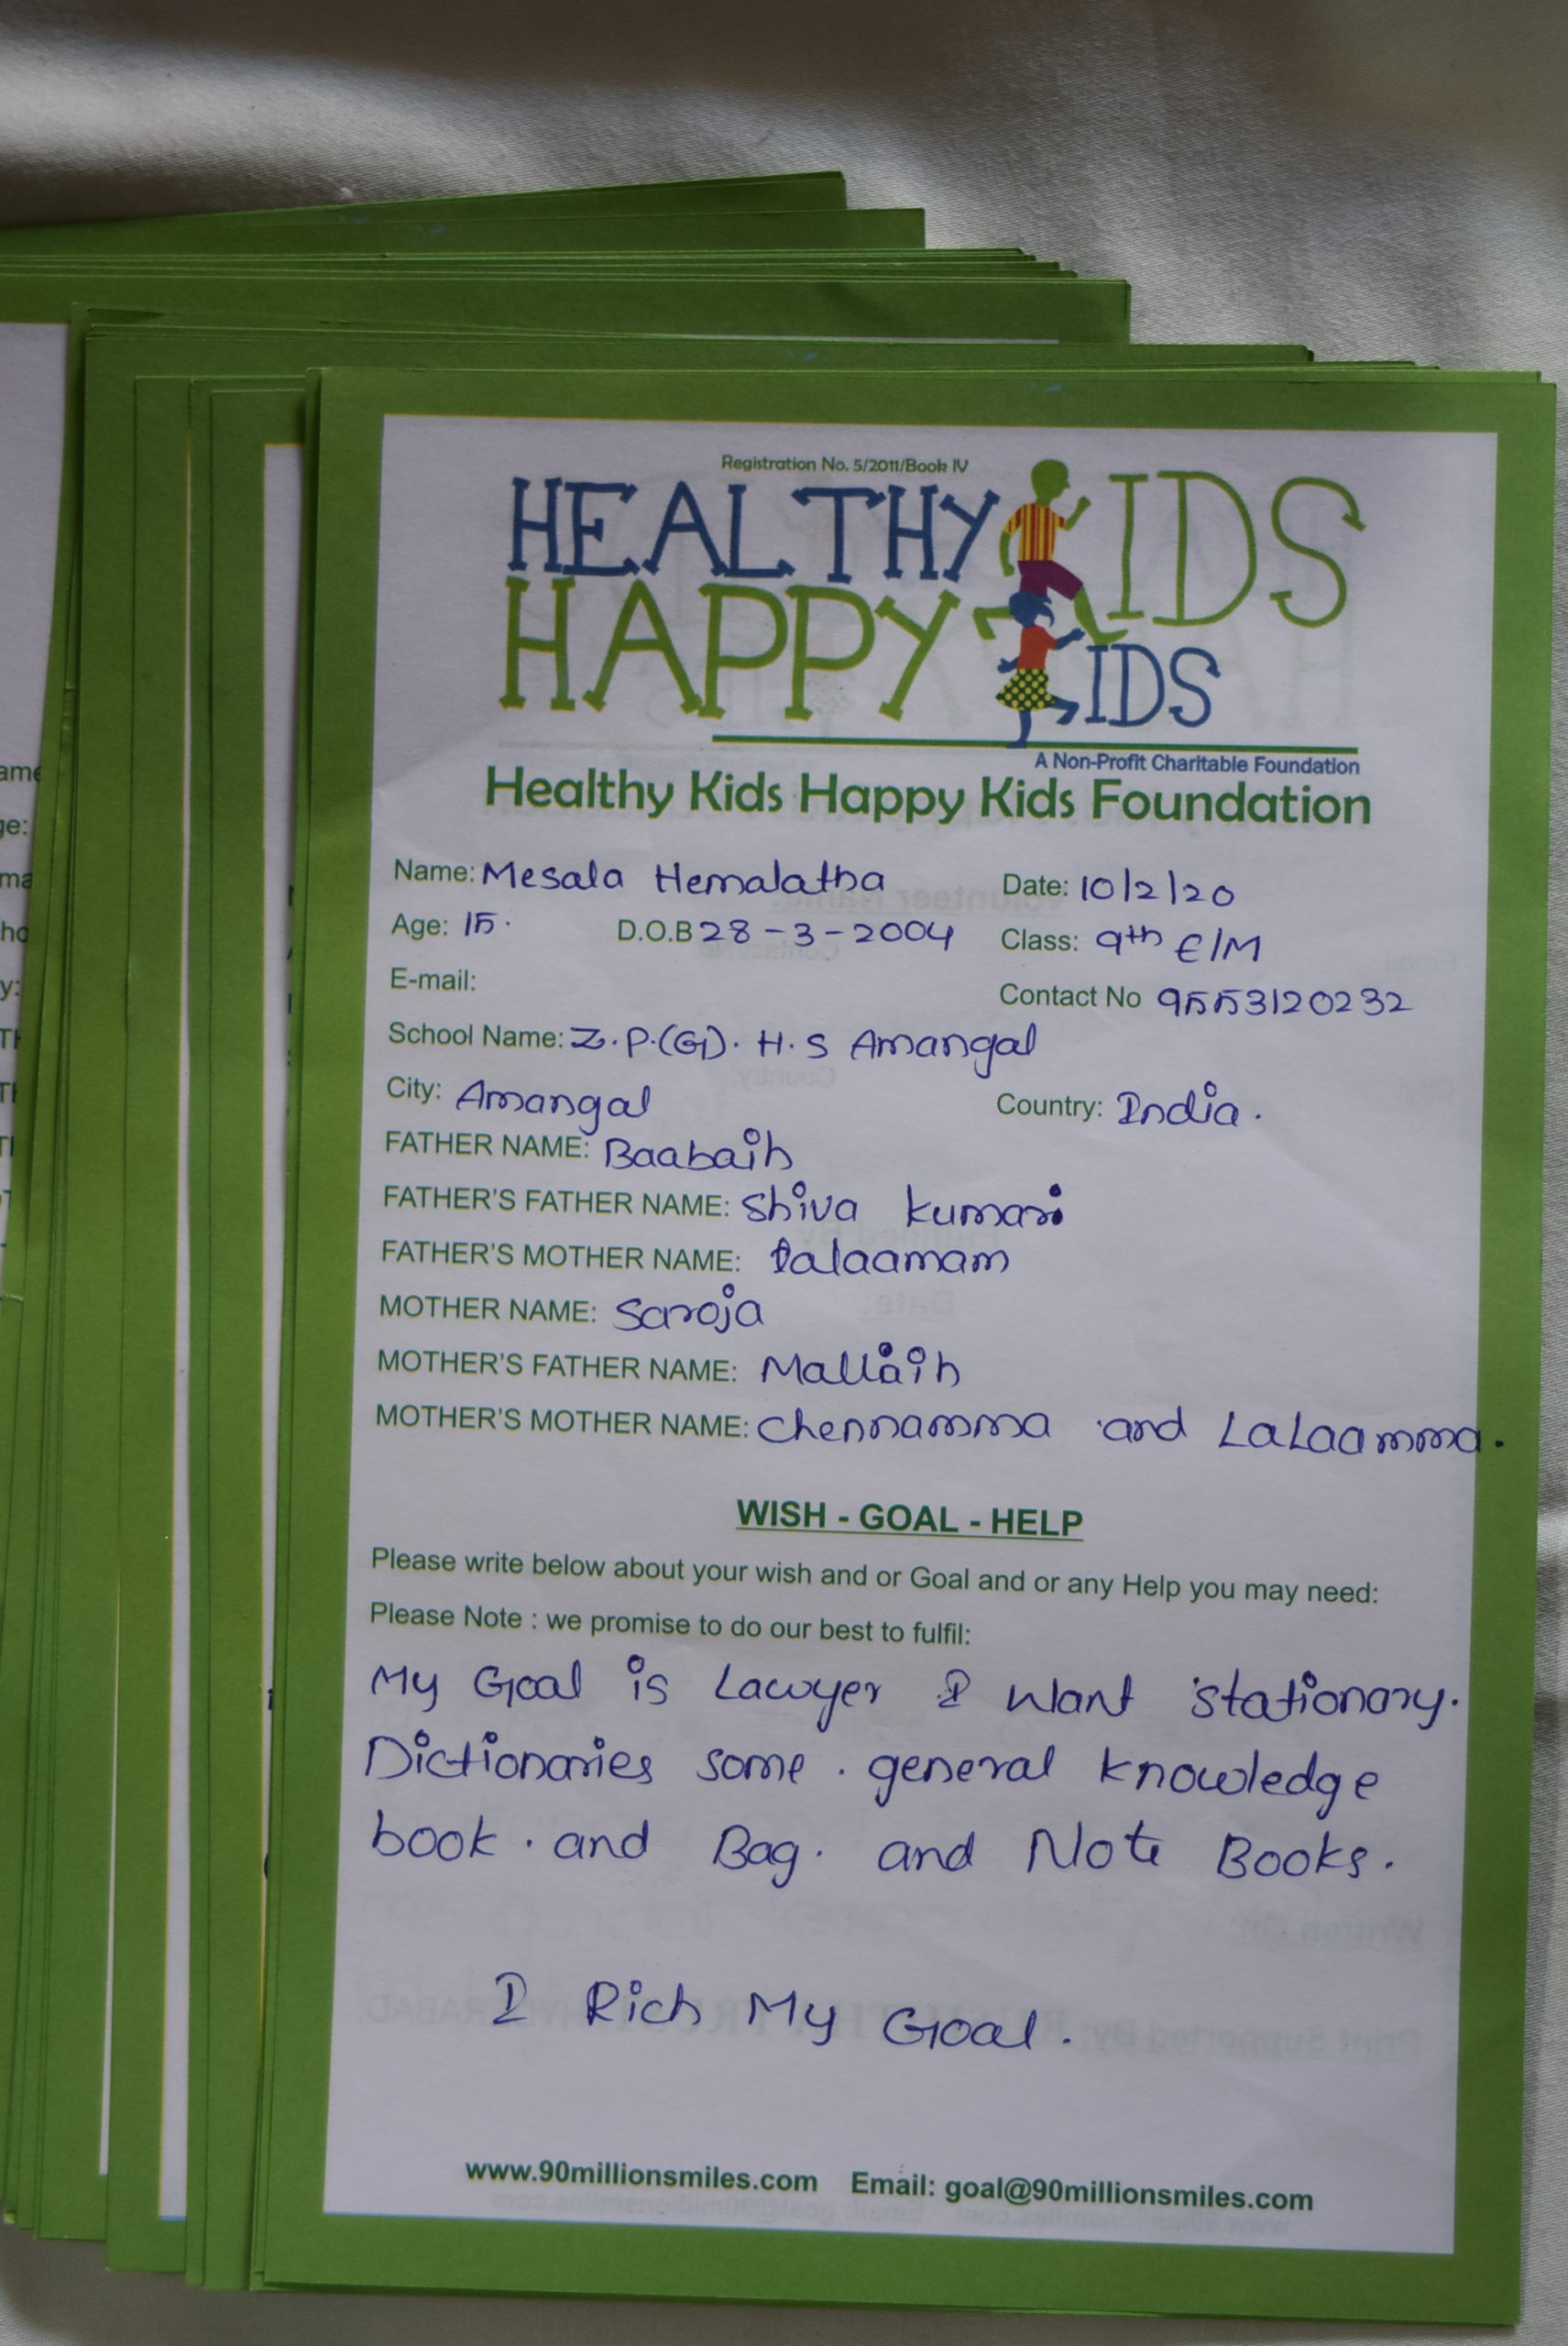 Registration No. 5/2011/Book IV
HEALTHY KIDS
HAPPY KIDS
A Non-Profit Charitable Foundation
Healthy Kids Happy Kids Foundation
Name: Mesala Hemalatha Date: 10/2/20
Age: 15. D.O.B 28-3-2004 Class: 9th E/M
E-mail: Contact No 9553120232
School Name: Z.P.(G). H.S Amangal
City: Amangal Country: India.
FATHER NAME: Baabaih
FATHER'S FATHER NAME: Shiva kumari
FATHER'S MOTHER NAME: lalaamam
MOTHER NAME: Saroja
MOTHER'S FATHER NAME: Mallaih
MOTHER'S MOTHER NAME: Chennamma and LaLaamma.
WISH - GOAL - HELP
Please write below about your wish and or Goal and or any Help you may need:
Please Note : we promise to do our best to fulfil:
My Goal is Lawyer I want stationary.
Dictionaries some . general knowledge
book . and Bag. and Note Books.
I Rich My Goal.
www.90millionsmiles.com Email: goal@90millionsmiles.com